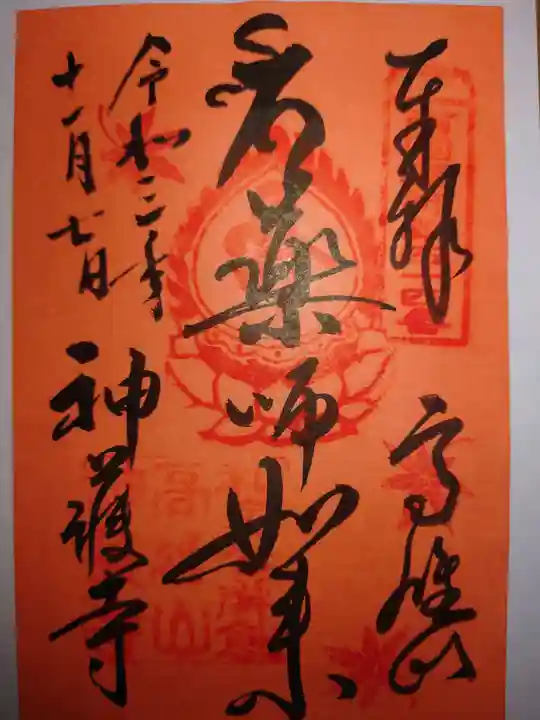 奉拝
高雄山
薬師如来
令和二年
十一月七日
神護寺